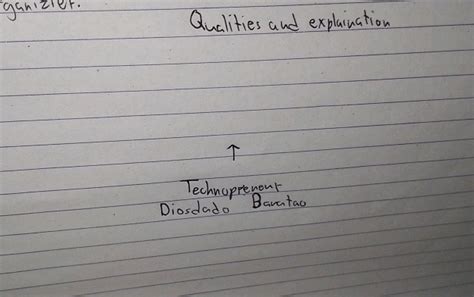 ganizier.
Qualities and explaination
↑
Technoprenour
Diosdado Banatao